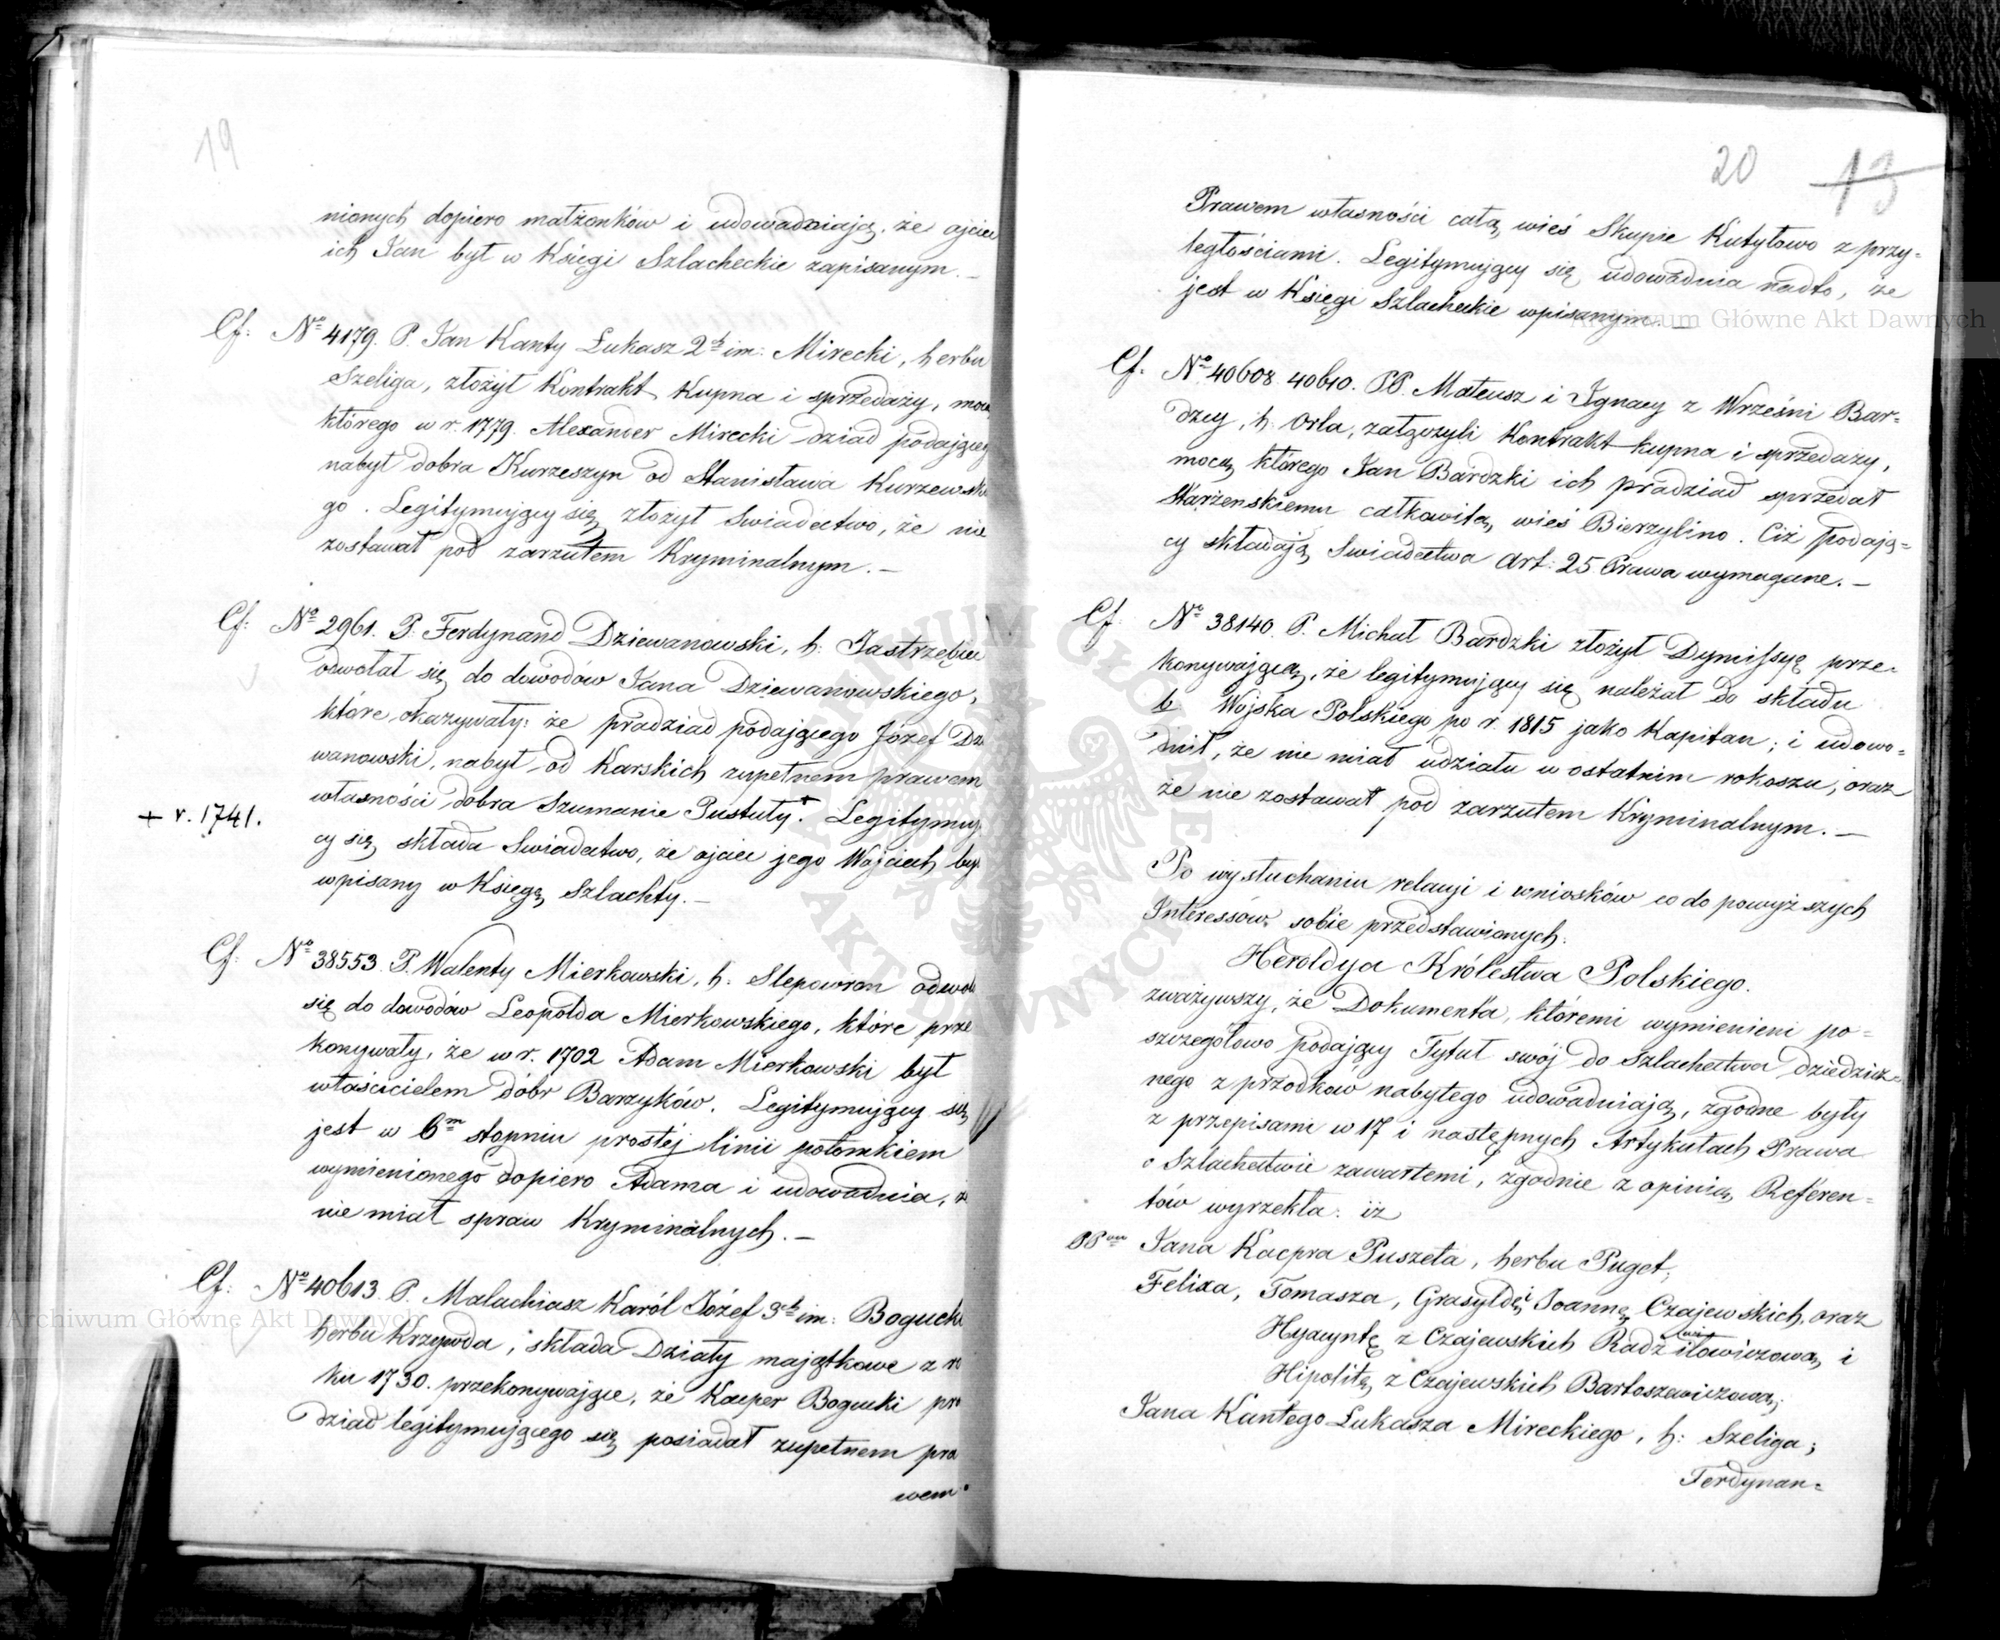 19
nionych dopiero małżonków i udowadniają, że ojciec
ich Jan był w Księgi Szlacheckie zapisanym. —
Cf: No 4179. P. Jan Kanty Łukasz 2ch im: Mirecki, herbu
Szeliga, złożył Kontrakt Kupna i sprzedaży, mocą
którego w r. 1779. Alexander Mirecki dziad podającego
nabył dobra Kurzeszyn od Stanisława Kurzewskie
go. Legitymujący się złożył Swiadectwo, że nie
zostawał pod zarzutem Kryminalnym. —
Cf: No 2961. P. Ferdynand Dziewanowski, h: Jastrzębiec
odwołał się do dowodów Jana Dziewanowskiego,
które okazywały: że pradziad podającego Józef Dzie
wanowski, nabył od Karskich zupełnem prawem
własności dobra Szumanie Pustuły.+ Legitymują
+ r. 1741.
cy się, składa Swiadectwo, że ojciec jego Wojciech był
wpisany w Księgę Szlachty. —
Cf: No 38553. P. Walenty Mierkowski, h: Slepowron odwołał
się do dowodów Leopolda Mierkowskiego, które prze
konywały, że w r. 1702 Adam Mierkowski był
właścicielem dóbr Barzyków. Legitymujący się
jest w 6m stopniu prostej linii potomkiem
wymienionego dopiero Adama i udowadnia, że
nie miał spraw Kryminalnych. —
Cf: No 40613. P. Malachiasz Karól Józef 3ch im: Bogucki
herbu Krzywda, składa Działy majątkowe z ro
ku 1730. przekonywające, że Kacper Bogucki pra
dziad legitymującego się posiadał zupełnem pra
wem
20 13
Prawem własności całą wieś Skupie Kutyłowo z przy-
ległościami. Legitymujący się udowadnia nadto, że
jest w Księgi Szlacheckie wpisanym. —
Cf: No 40608. 40610. PP. Mateusz i Ignacy z Wrześni Bar-
dzcy, h: Orla, załączyli Kontrakt kupna i sprzedaży,
mocą którego Jan Bardzki ich pradziad sprzedał
Starzenskiemu całkowitą wieś Bierzylino. Ciż podają-
cy składają Swiadectwa Art: 25 Prawa wymagane. —
Cf: No 38140. P. Michał Bardzki złożył Dymissyę prze-
konywającą, że legitymujący się należał do składu
b. Wojska Polskiego po r. 1815 jako Kapitan; i udowo-
dnił, że nie miał udziału w ostatnim rokoszu, oraz
że nie zostawał pod zarzutem Kryminalnym. —
Po wysłuchaniu relacyi i wniosków co do powyższych
Interessów, sobie przedstawionych:
Heroldya Królestwa Polskiego.
zważywszy, że Dokumenta, któremi wymienieni po-
szczegółowo podający Tytuł swój do Szlachectwa dziedzicz-
nego z przodków nabytego udowadniają, zgodne były
z przepisami w 17 i następnych Artykułach Prawa
o Szlachectwie zawartemi, zgodnie z opinią Referen-
tów wyrzekła: iż
Jana Kacpra Puszeta, herbu Puget,
Felixa, Tomasza, Grasyldę i Joannę Czajewskich, oraz
Hyacyntę z Czajewskich Radziłowiczową, i
Hipolitę z Czajewskich Bartoszewiczową;
Jana Kantego Łukasza Mireckiego, h: Szeliga;
Ferdynan-
Archiwum Główne Akt Dawnych
Archiwum Główne Akt Dawnych
ARCHIWUM GŁÓWNE AKT DAWNYCH